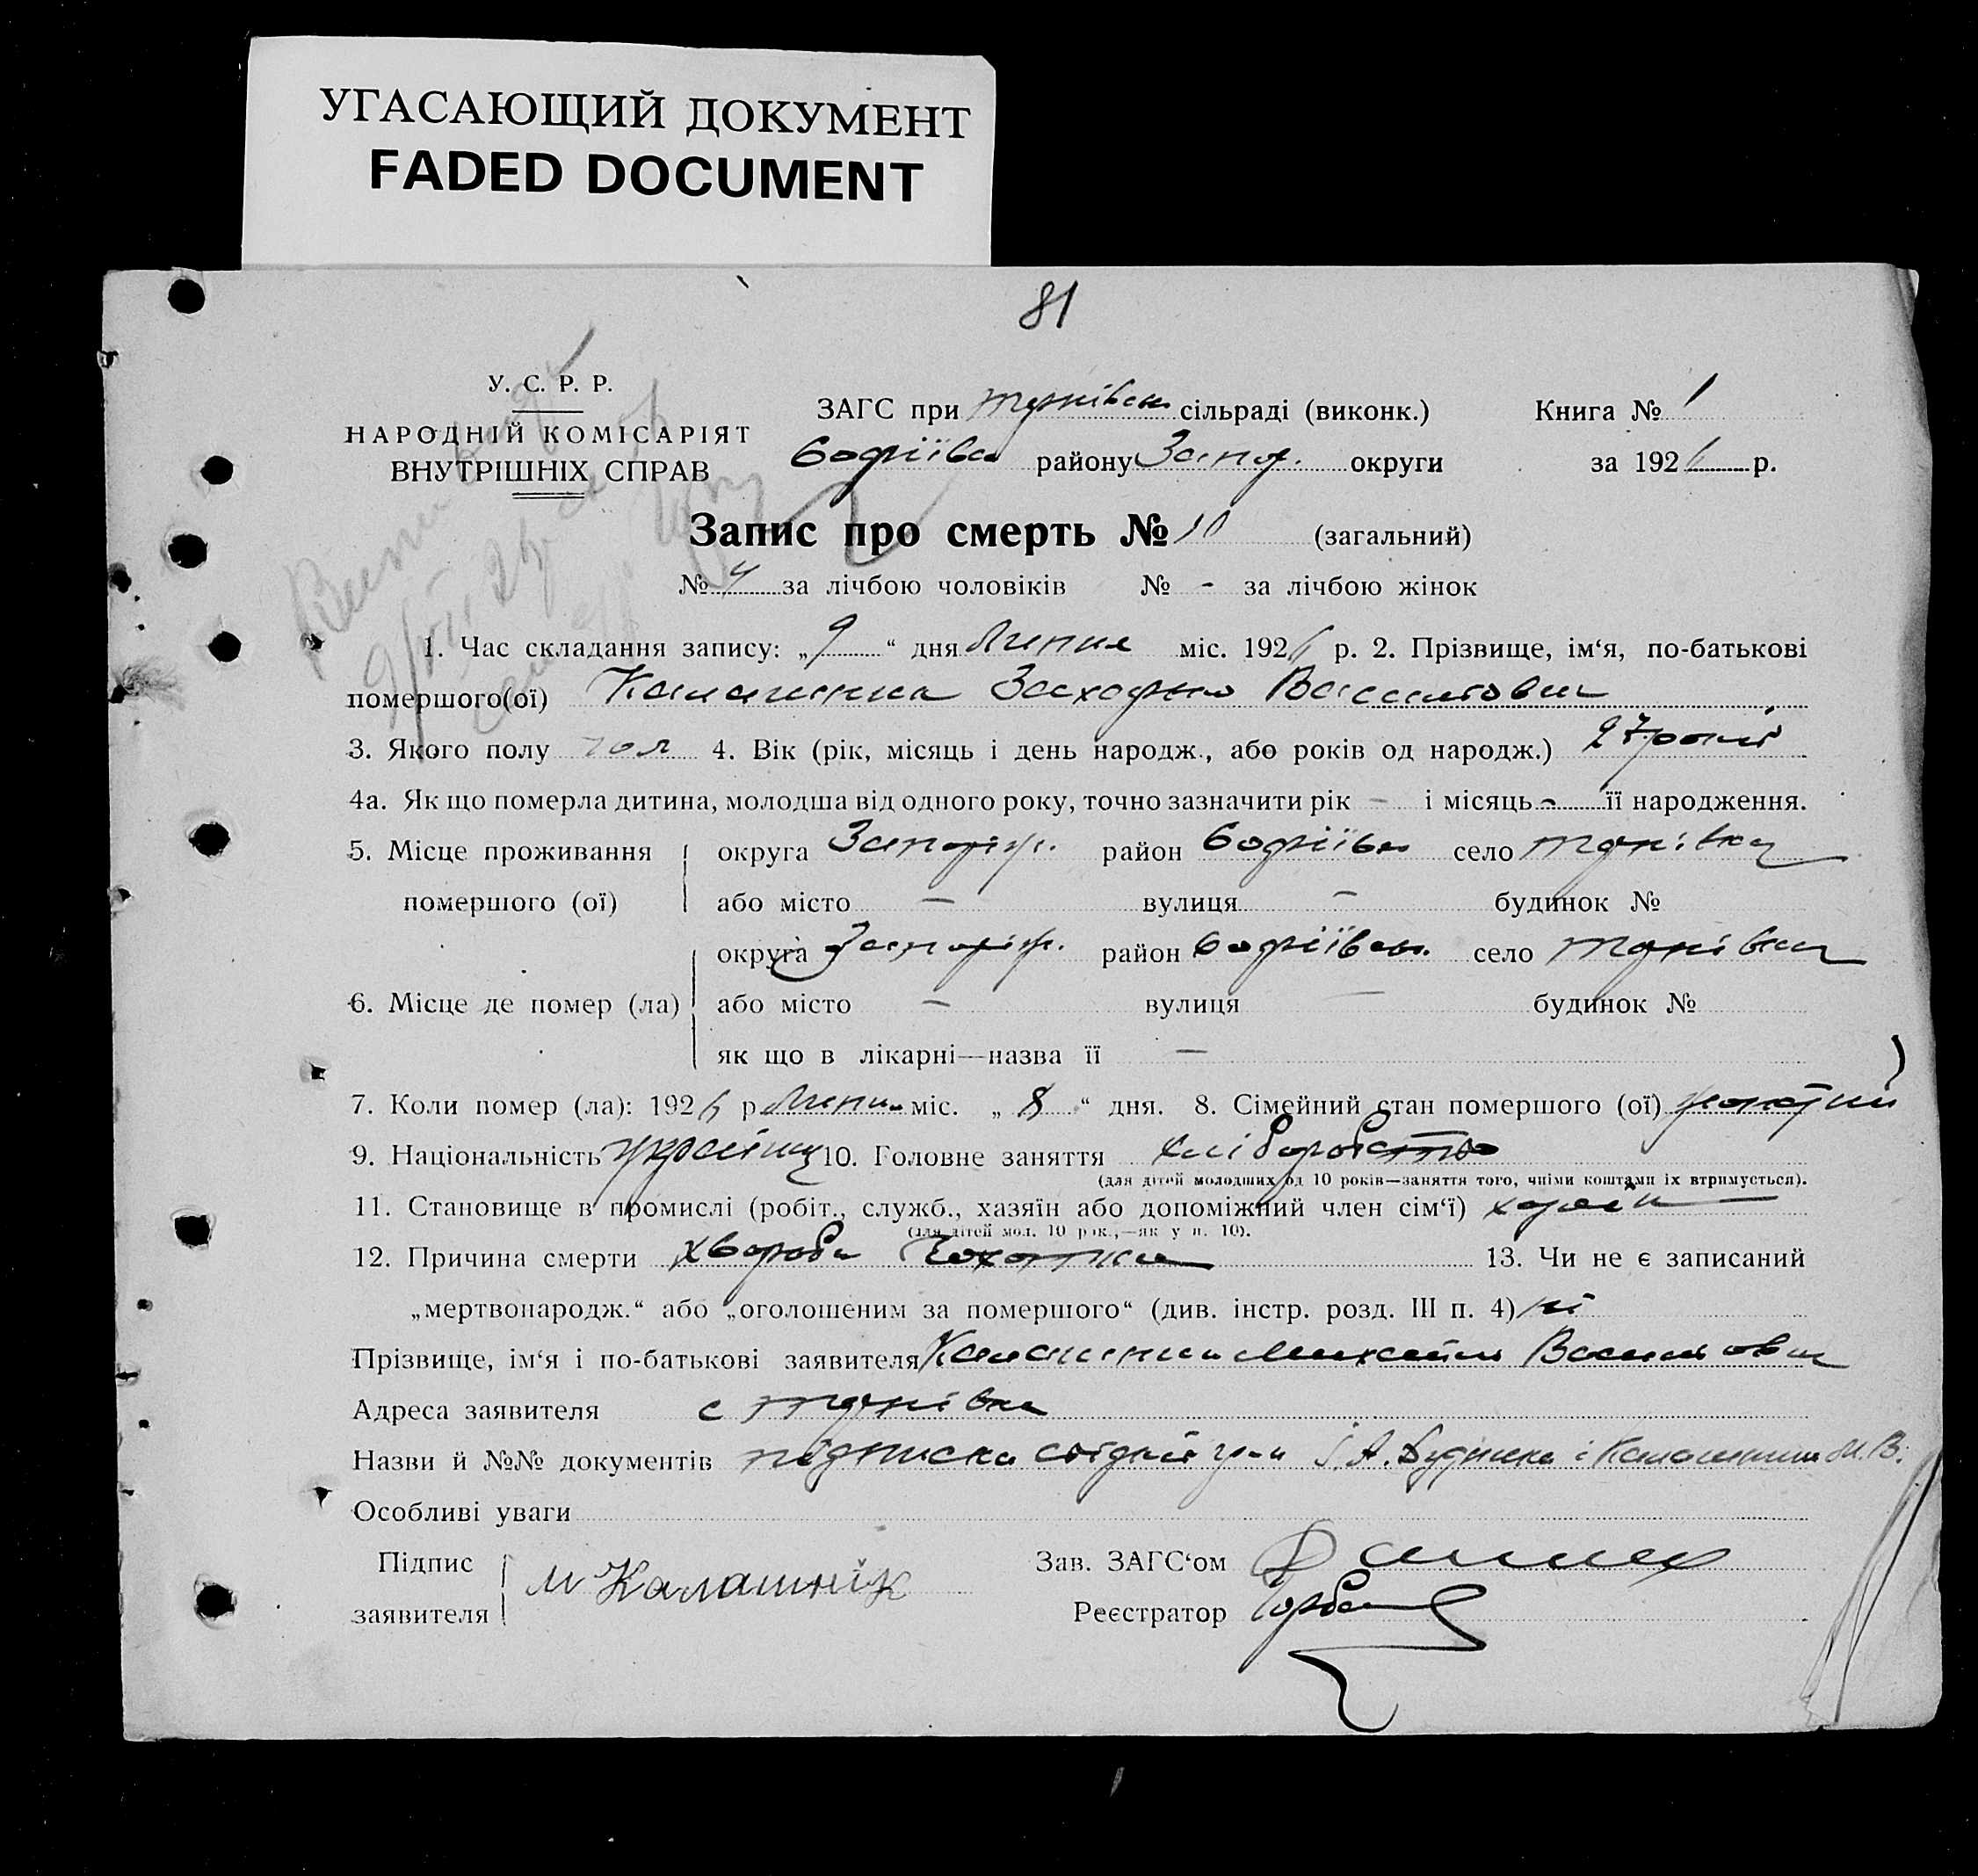 УГАСАЮЩИЙ ДОКУМЕНТ
FADED DOCUMENT
81
У. С. Р. Р.
НАРОДНІЙ КОМІСАРІЯТ
ВНУТРІШНІХ СПРАВ
ЗАГС при сільраді (виконк.) Книга № 1
району Запор. округи за 1926 р.
Запис про смерть № 10 (загальний)
№ 4 за лічбою чоловіків № - за лічбою жінок
1. Час складання запису: „9“ дня Липня міс. 1926 р. 2. Прізвище, ім‘я, по-батькові
помершого(ої) Калашник Захарко Васильович
3. Якого полу чол 4. Вік (рік, місяць і день народж., або років од народж.) 27 років
4а. Як що померла дитина, молодша від одного року, точно зазначити рік - і місяць - її народження.
5. Місце проживання округа Запоріж. район село
помершого (ої) або місто — вулиця — будинок №
округа Запоріж. район село
6. Місце де помер (ла) або місто — вулиця — будинок №
як що в лікарні—назва її —
7. Коли помер (ла): 1926 р. Липня міс. „8“ дня. 8. Сімейний стан помершого (ої) жонатий
9. Національність українец 10. Головне заняття хліборобство
(для дітей молодших од 10 років—заняття того, чніми коштами їх втримується).
11. Становище в промислі (робіт., служб., хазяїн або допоміжний член сім‘ї) хазяїн
(для дітей мол. 10 рок.,—як у п. 10).
12. Причина смерти хвороба Чохотка 13. Чи не є записаний
„мертвонародж.“ або „оголошеним за помершого“ (див. інстр. розд. III п. 4) ні
Прізвище, ім‘я і по-батькові заявителя Калашник Михайло Васильович
Адреса заявителя с
Назви й №№ документів підписка свідків гр-н і Калашник М. В.
Особливі уваги
Підпис заявителя М Калашнік
Зав. ЗАГС‘ом
Реєстратор